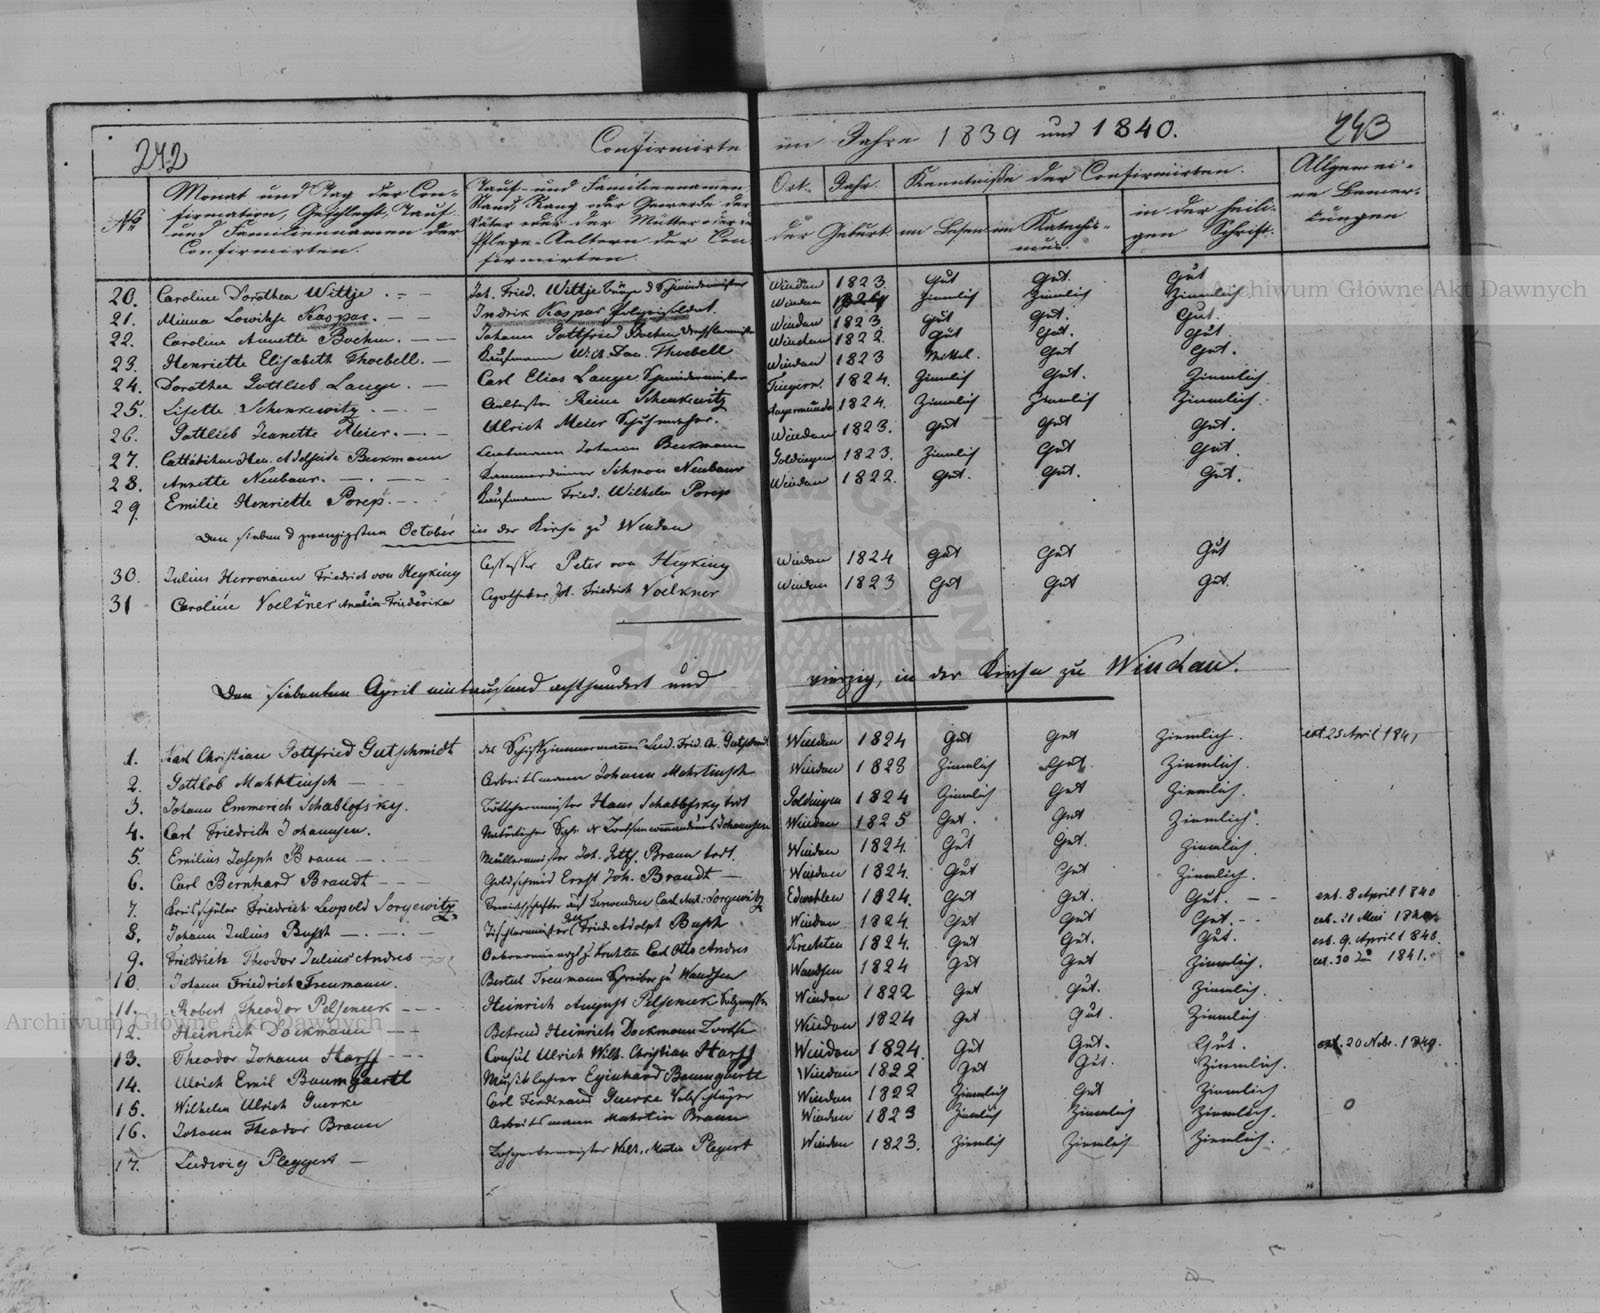 242
Confirmirte im Jahre 1839 und 1840.
243
No
Monat und Tag der Con-
firmation, Geschlecht, Tauf-
und Familiennamen der
Confirmirten.
Tauf- und Familiennamen,
Stand, Rang oder Gewerbe der
Väter oder der Mütter oder
Pflege-Aeltern der Con-
firmirten.
Ort. Jahr.
der Geburt.
Kenntniße der Confirmirten.
im Lesen
im Katechis-
mus.
in der heili-
gen Schrift.
Allgemei-
ne Bemer-
kungen
20. Caroline Dorothea Wittje Joh. Fried. Wittje Windau 1823. Gut Gut. Gut
21. Minna Lowihse Kaspar. Indrik Kaspar Windau Ziemlich Ziemlich Ziemlich
22. Caroline Annette Bochm. Johann Gottfried Bochm Windau 1823. Gut Gut Gut.
23. Henriette Elisabeth Thoebell. Kaufmann Wilh. Dan. Thoebell Windau 1822. Gut Gut. Gut
24. Dorothea Gottlieb Lange. Carl Elias Lange Windau 1823 Mittel. Gut Gut.
25. Lisette Schenkewitz. Reine Schenkewitz 1824. Ziemlich Gut. Ziemlich
26. Gottlieb Jeanette Meier. Ulrich Meier Schuhmacher. 1824. Ziemlich Ziemlich Ziemlich.
27. Adelheide Beekmann Johann Beekmann Windau 1823. Gut Gut Gut.
28. Annette Neubaur. Neubaur Goldingen 1823. Ziemlich Gut Gut.
29. Emilie Henriette Porep. Kaufmann Fried. Wilhelm Porep Windau 1822. Gut. Gut. Gut.
Den sieben d zwanzigsten October in der Kirche zu Windau
30. Julius Herrmann Friedrich von Heyking Peter von Heyking Windau 1824 Gut Gut Gut
31 Caroline Voelkner Amalia Friederika Apotheker Joh. Friedrich Voelkner Windau 1823 Gut Gut Gut.
Den siebenten April eintausend achthundert und vierzig, in der Kirche zu Windau.
1. Karl Christian Gottfried Gutschmidt Windau 1824 Gut Gut Ziemlich. ext. 25 April 1841
2. Gottlob Mahrtinsch Arbeitsmann Johann Mahrtinsch Windau 1823 Ziemlich Gut. Ziemlich.
3. Johann Emmerich Schablofsky. Böttchermeister Hans Schablofsky todt Goldingen 1824 Ziemlich Gut Ziemlich.
4. Carl Friedrich Johannsen. Johannsen Windau 1825 Gut. Gut Ziemlich.
5. Emilius Joseph Braun Müllermeister Joh. Gottf. Braun todt. Windau 1824. Gut Gut. Ziemlich.
6. Carl Bernhard Brandt Goldschmid Ernst Joh. Brandt Windau 1824. Gut Gut Ziemlich.
7. Kreisschüler Friedrich Leopold Sorgewitz Sorgewitz Edwahlen 1824. Gut Gut. Gut. ext. 8 April 1840
8. Johann Julius Busch Tischlermeister Fried. Adolph Busch Windau 1824. Gut Gut Gut. ext. 21 Mai
9. Friedrich Theodor Julius Andres Carl Otto Andres 1824. Gut Gut. Gut. ext. 9. April 1840.
10. Johann Friedrich Freumann. Bertul Freumann Schreiber zu Wandsen Wandsen 1824 Gut Gut Ziemlich. ext. 30 1841.
11. Robert Theodor Pelseneek Heinrich August Pelseneek Windau 1822 Gut Gut. Ziemlich.
12. Heinrich Dockmann Behrend Heinrich Dockmann Lootse Windau 1824 Gut Gut. Ziemlich
13. Theodor Johann Harff Consul Ulrich Wilh. Christian Harff Windau 1824. Gut Gut. Gut. ext. 20 Nobr. 1840.
14. Ulrich Emil Baumgaertl Musiklehrer Eginhard Baumgaertl Windau 1822 Gut Gut. Ziemlich.
15. Wilhelm Ulrich Guerke Carl Ferdinand Guerke Windau 1822 Ziemlich Gut Ziemlich
16. Johann Theodor Braun Arbeitsmann Mahrtin Braun Windau 1823 Ziemlich Ziemlich Ziemlich.
17. Ludwig Pleggert Wilh. Martin Plegert Windau 1823. Ziemlich Ziemlich Ziemlich.
Archiwum Główne Akt Dawnych
Archiwum Główne Akt Dawnych